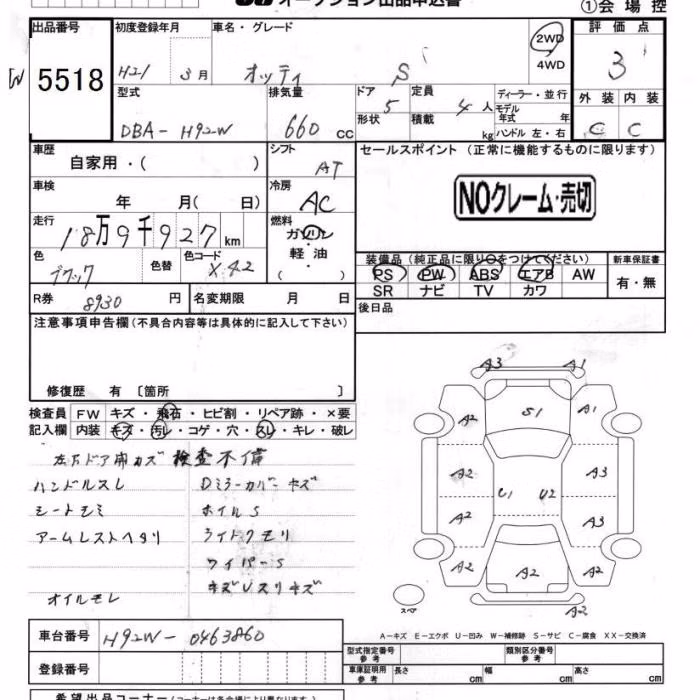 オークション出品申込書
①会場控
出品番号 初度登録年月 車名・グレード 2WD 評価点
5518 H21 3月 オッティ S 4WD 3
型式 排気量 ドア 5 定員 4人 ディーラー・並行 外装 内装
DBA-H92W 660 cc 形状 積載 kg モデル年式 年 C C
ハンドル 左・右
車歴 シフト セールスポイント (正常に機能するものに限ります)
自家用・( ) AT
車検 冷房 NOクレーム・売切
年 月( 日) AC
走行 燃料
18万9千927km ガソリン
軽油
( ・ )
色 色替 色コード 装備品(純正品に限り○をつけてください) 新車保証書
ブラック X42 PS PW ABS エアB AW 有・無
R券 8930 円 名変期限 月 日 SR ナビ TV カワ
注意事項申告欄(不具合内容等は具体的に記入して下さい) 後日品
修復歴 有 〔箇所 〕
検査員 FW キズ・飛石・ヒビ割・リペア跡・×要
記入欄 内装 キズ・汚レ・コゲ・穴・スレ・キレ・破レ
検査不備
ハンドルスレ Dミラーカバーキズ
シートモミ ホイルS
アームレストヘタリ ライトクモリ
ワイパーS
キズUスリキズ
オイルモレ
A3 A1
A2 S1 A1
A2 U1 U2 A3
A2 A3
A2 A2 A2
スペア A2
A-キズ E-エクボ U-凹み W-補修跡 S-サビ C-腐食 XX-交換済
車台番号 H92W-0463860
登録番号
型式指定番号 参考 類別区分番号 参考
車庫証明用 参考 長さ cm 幅 cm 高さ cm
希望出品コーナー